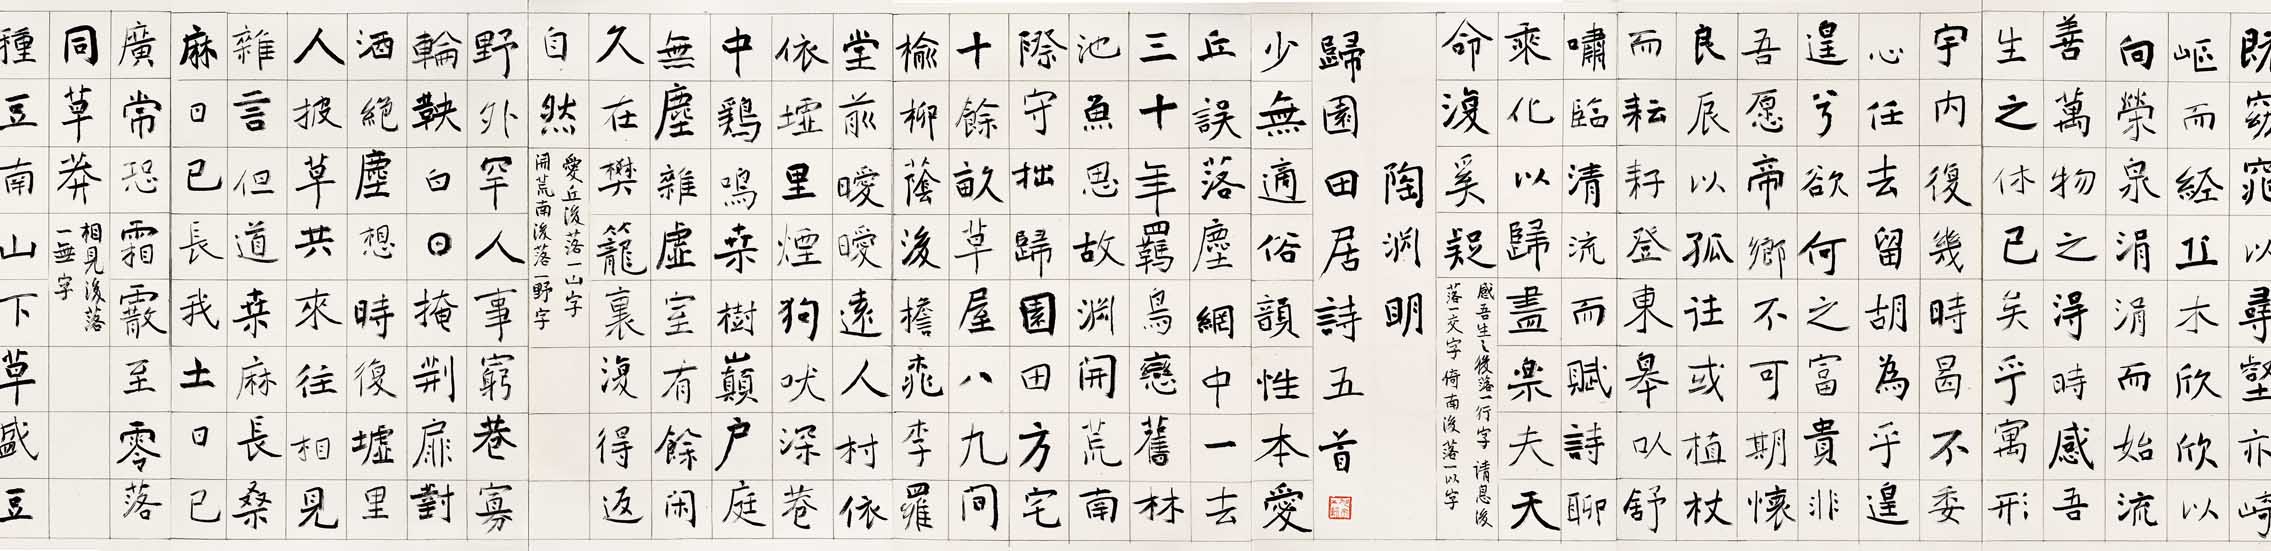 既窈窕以尋壑亦崎
嶇而経丘木欣欣以
向榮泉涓涓而始流
善萬物之得時感吾
生之休已矣乎寓形
宇内復幾時曷不委
心任去留胡為乎遑
遑兮欲何之富貴非
吾愿帝鄉不可期懷
良辰以孤往或植杖
而耘耔登東皋以舒
嘯臨清流而賦詩聊
乘化以歸盡樂夫天
命復奚疑
感吾生之後落一行字 请息後
落一交字 倚南後落一以字
陶渊明
歸園田居詩五首
少無適俗韻性本愛
丘誤落塵網中一去
三十年羈鳥戀舊林
池魚思故渊開荒南
際守拙歸園田方宅
十餘畝草屋八九间
榆柳蔭後檐桃李羅
堂前曖曖遠人村依
依墟里煙狗吠深巷
中鷄鳴桒樹巔户庭
無塵雜虛室有餘闲
久在樊籠裏復得返
自然
愛丘後落一山字
開荒南後落一野字
野外罕人事窮巷寡
輪鞅白日掩荆扉對
酒絕塵想時復墟里
人披草共來往相見
雜言但道桒麻長桑
麻日已長我土日已
廣常恐霜霰至零落
同草莽
相見後落
一無字
種豆南山下草盛豆